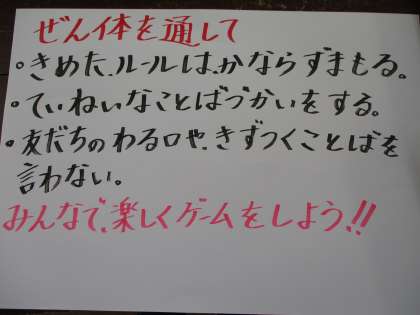 ぜん体を通して
・きめた、ルールは、かならずまもる。
・ていねいなことばづかいをする。
・友だちのわる口や、きずつくことばを
言わない。
みんなで、楽しくゲームをしよう!!